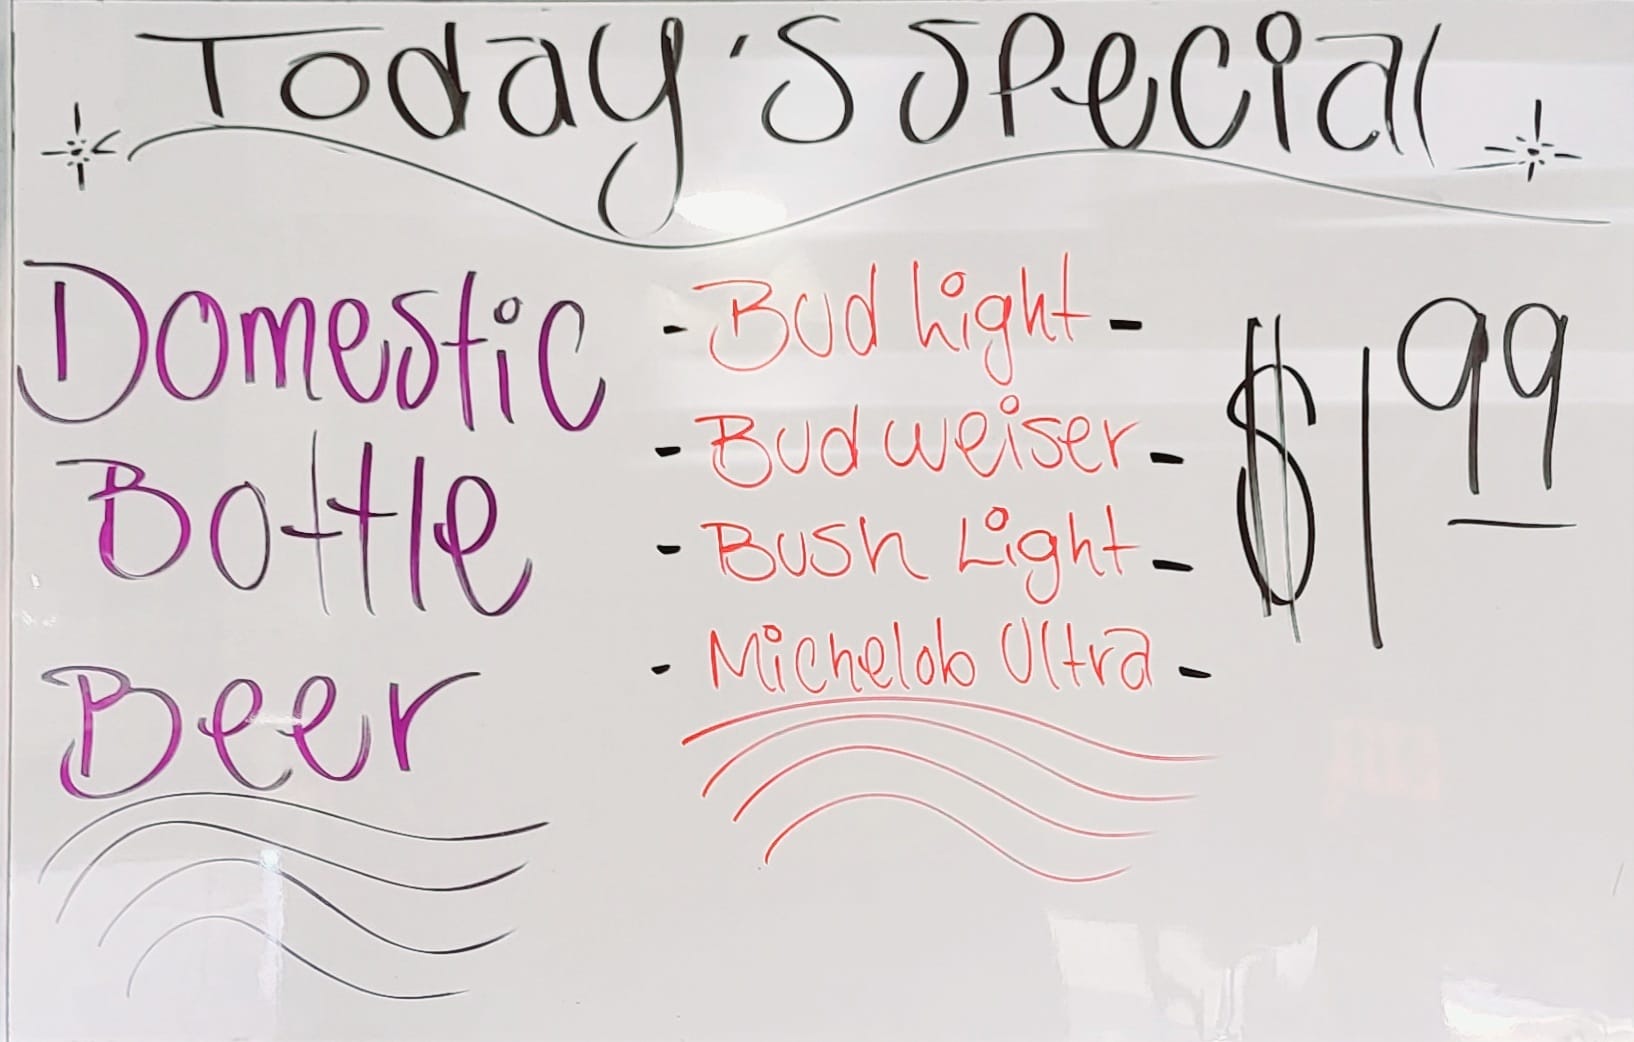 Today's Special
Domestic
Bottle
Beer
- Bud Light -
- Budweiser -
- Bush Light -
- Michelob Ultra -
$1.99